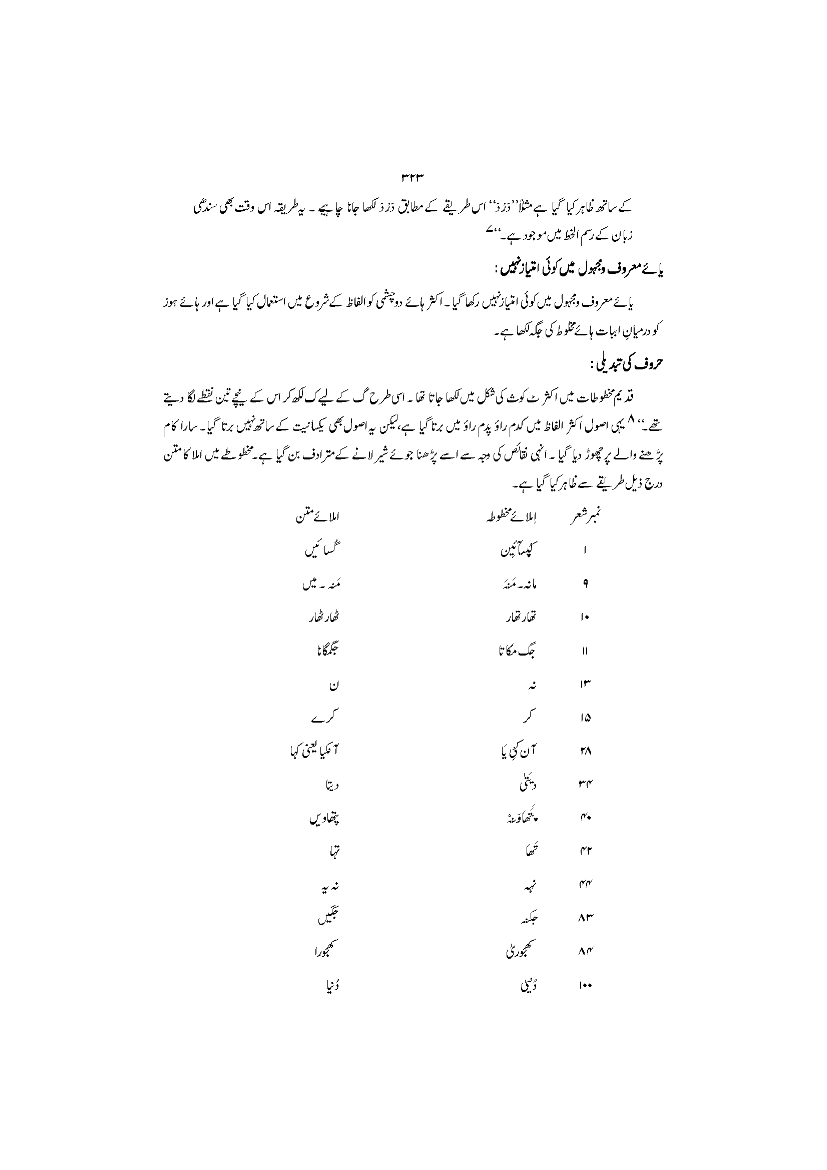 ۳۲۳
کے ساتھ ظاہر کیا گیا ہے مثلاً ’’دَرد‘‘ اس طریقے کے مطابق دَرد لکھا جانا چاہیے ۔ یہ طریقہ اس وقت بھی سندھی
زبان کے رسم الخط میں موجود ہے۔‘‘۷
یائے معروف و مجہول میں کوئی امتیاز نہیں :
یائے معروف و مجہول میں کوئی امتیاز نہیں رکھا گیا ۔ اکثر ہائے دو چشمی کو الفاظ کے شروع میں استعمال کیا گیا ہے اور ہائے ہوز
کو درمیانِ ابیات ہائے مخلوط کی جگہ لکھا ہے۔
حروف کی تبدیلی :
قدیم مخطوطات میں اکثر ٹ کو ث کی شکل میں لکھا جاتا تھا ۔ اسی طرح گ کے لیے ک لکھ کر اس کے نیچے تین نقطے لگا دیتے
تھے۔‘‘۸ یہی اصول اکثر الفاظ میں کدم راؤ پدم راؤ میں برتا گیا ہے،لیکن یہ اصول بھی یکسانیت کے ساتھ نہیں برتا گیا ۔ سارا کام
پڑھنے والے پر چھوڑ دیا گیا ۔ انہی نقائص کی وجہ سے اسے پڑھنا جوئے شیر لانے کے مترادف بن گیا ہے۔مخطوطے میں املا کا متن
درج ذیل طریقے سے ظاہر کیا گیا ہے۔
نمبر شعر املائے مخطوطہ املائے متن
۱ گسائیں
۹ مانہ۔ مَنہَ مَنہ ۔ میں
۱۰ تھار تھار ٹھار ٹھار
۱۱ جگ مکاتا جگمگاتا
۱۳ نہ ن
۱۵ کر کرے
۲۸ آن کئی یا آنکیا یعنی کہا
۳۴ دیتیٰ دیتا
۴۰ پتھاویں
۴۲ تَھا تہا
۴۴ نہہ نہ یہ
۸۳ جکنہ
۸۴ کھجوریٰ کھجورا
۱۰۰ دُنیا